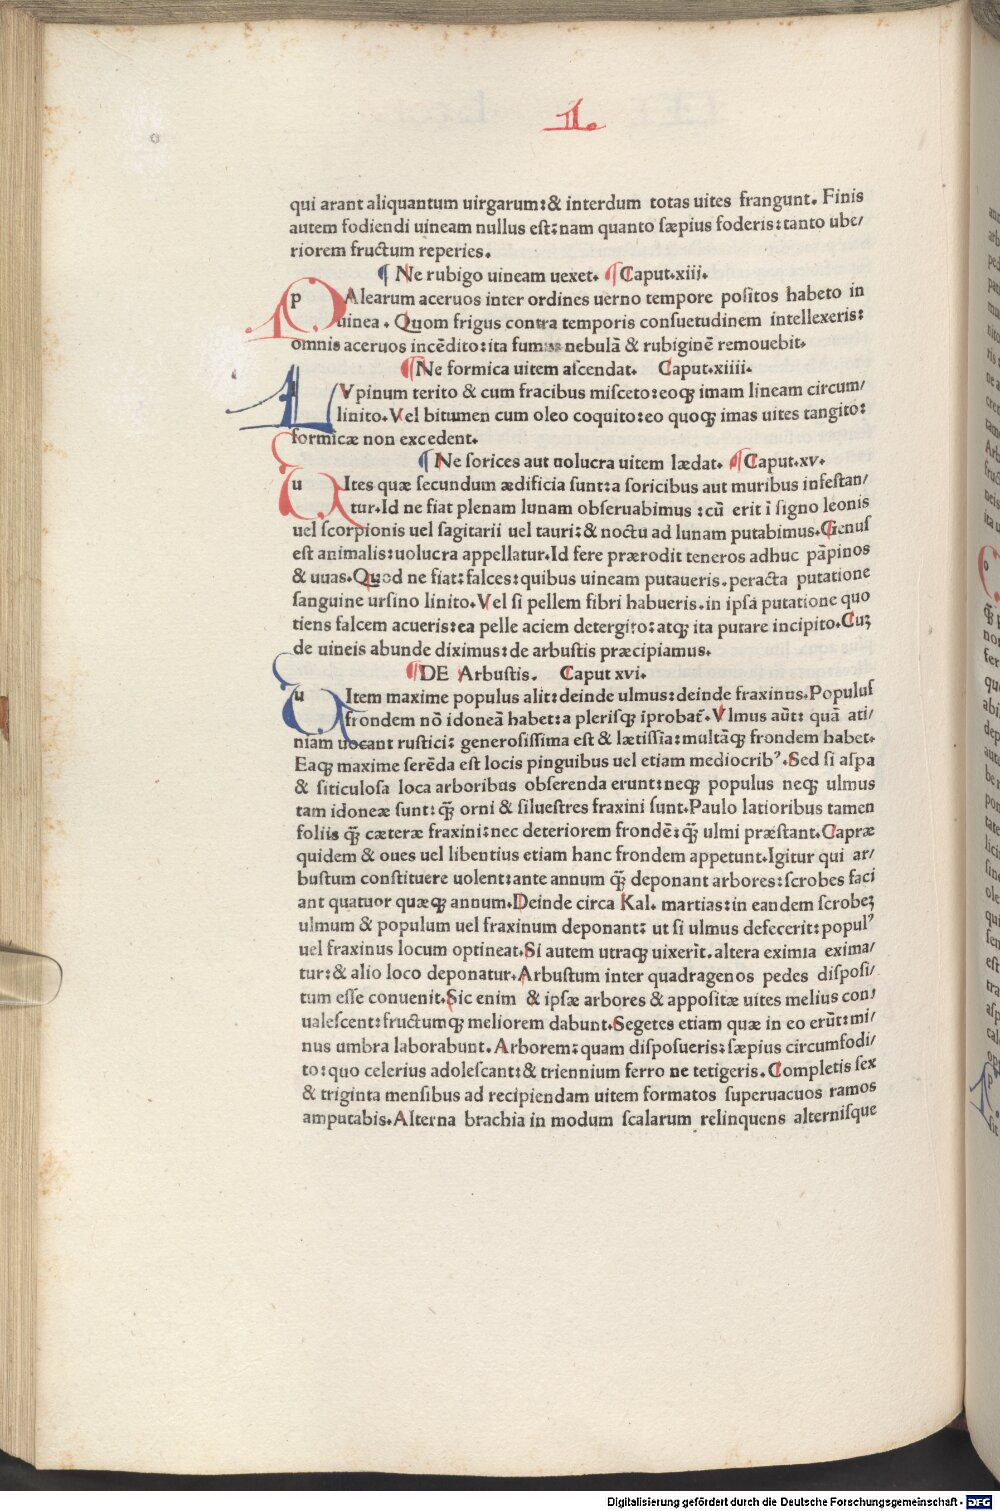 II.
qui arant aliquantum uirgarum:& interdum totas uites frangunt. Finis
autem fodiendi uineam nullus eſt:nam quanto ſæpius foderis:tanto ube/
riorem fructum reperies.
¶ Ne rubigo uineam uexet. ¶ Caput.xiii.
p Alearum aceruos inter ordines uerno tempore poſitos habeto in
uinea. Quom frigus contra temporis conſuetudinem intellexeris:
omnis aceruos incēdito:ita fumus nebulā & rubiginē remouebit.
¶ Ne formica uitem aſcendat. Caput.xiiii.
l Vpinum terito & cum fracibus miſceto:eoqꝫ imam lineam circum/
linito.Vel bitumen cum oleo coquito:eo quoqꝫ imas uites tangito:
formicæ non excedent.
¶ Ne ſorices aut uolucra uitem lædat. ¶ Caput.xv.
u Ites quæ ſecundum ædificia ſunt:a ſoricibus aut muribus infeſtan/
tur.Id ne fiat plenam lunam obſeruabimus:cū erit ī ſigno leonis
uel ſcorpionis uel ſagitarii uel tauri:& noctu ad lunam putabimus.Genuſ
eſt animalis:uolucra appellatur.Id fere prærodit teneros adhuc pāpinos
& uuas.Quod ne fiat:falces:quibus uineam putaueris.peracta putatione
ſanguine urſino linito.Vel ſi pellem fibri habueris.in ipſa putatione quo
tiens falcem acueris:ea pelle aciem detergito:atqꝫ ita putare incipito.Cuꝫ
de uineis abunde diximus:de arbuſtis præcipiamus.
¶ DE Arbuſtis. Caput xvi.
u Item maxime populus alit:deinde ulmus:deinde fraxinus.Populuſ
frondem nō idoneā habet:a pleriſqꝫ iprobat̄.Vlmus aūt: quā ati/
niam uocant ruſtici: generoſiſſima eſt & lætiſſia:multāqꝫ frondem habet.
Eaqꝫ maxime ſerēda eſt locis pinguibus uel etiam mediocribꝰ.Sed ſi aſpa
& ſiticuloſa loca arboribus obſerenda erunt:neqꝫ populus neqꝫ ulmus
tam idoneæ ſunt:qꝫ̄ orni & ſilueſtres fraxini ſunt.Paulo latioribus tamen
foliis qꝫ̄ cæteræ fraxini:nec deteriorem frondē:qꝫ̄ ulmi præſtant.Capræ
quidem & oues uel libentius etiam hanc frondem appetunt.Igitur qui ar/
buſtum conſtituere uolent:ante annum qꝫ̄ deponant arbores:ſcrobes faci
ant quatuor quæqꝫ annum.Deinde circa Kal. martias:in eandem ſcrobeꝫ
ulmum & populum uel fraxinum deponant: ut ſi ulmus defecerit:populꝰ
uel fraxinus locum optineat.Si autem utraqꝫ uixerit.altera eximia exima/
tur:& alio loco deponatur.Arbuſtum inter quadragenos pedes diſpoſi/
tum eſſe conuenit.Sic enim & ipſæ arbores & appoſitæ uites melius con/
ualeſcent:fructumqꝫ meliorem dabunt.Segetes etiam quæ in eo erūt:mi/
nus umbra laborabunt.Arborem:quam diſpoſueris:ſæpius circumfodi/
to:quo celerius adoleſcant:& triennium ferro ne tetigeris.Completis ſex
& triginta menſibus ad recipiendam uitem formatos ſuperuacuos ramos
amputabis.Alterna brachia in modum ſcalarum relinquens alterniſque
Digitalisierung gefördert durch die Deutsche Forschungsgemeinschaft - DFG